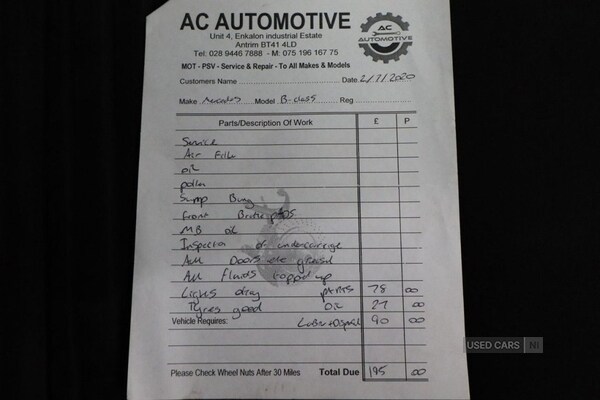 AC AUTOMOTIVE
Unit 4, Enkalon industrial Estate
Antrim BT41 4LD
Tel: 028 9446 7888 - M: 075 196 167 75
MOT - PSV - Service & Repair - To All Makes & Models
AC
AUTOMOTIVE
Customers Name Date 2/7/2020
Make Mercedes Model B-class Reg
Parts/Description Of Work £ P
Service
Air Filter
oil
pollen
Sump Bung
Front Brake pads
MB oil
Inspection of undercarrage
All Doors etc greased
All Fluids topped up
Lights okay parts 78 00
Tyres good Oil 27 00
Vehicle Requires: Labor + Disposal 90 00
Please Check Wheel Nuts After 30 Miles Total Due 195 00
USED CARS NI